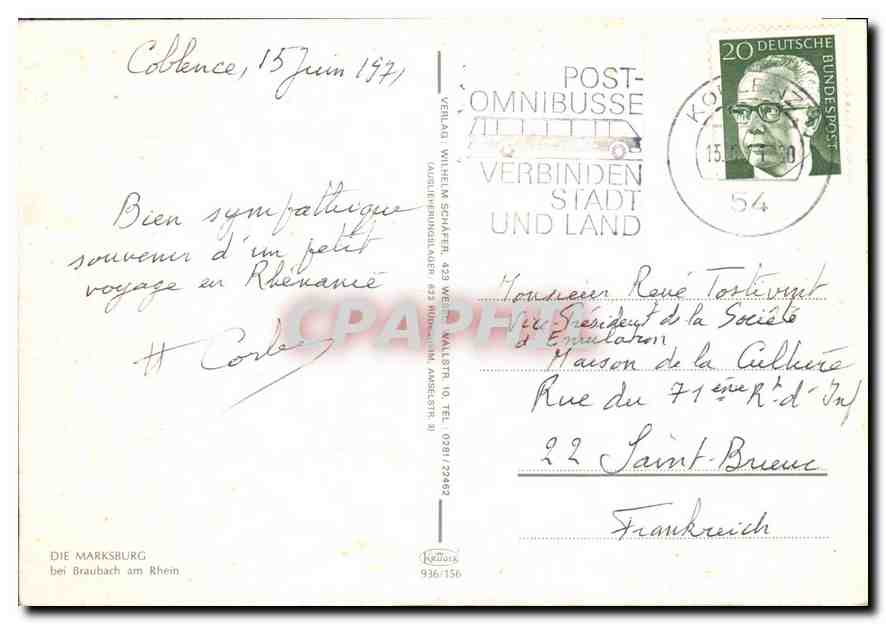 Coblence, 15 Juin 1971
Bien sympathique
souvenir d'un petit
voyage en Rhénanie
H Corbe
DIE MARKSBURG
bei Braubach am Rhein
VERLAG: WILHELM SCHÄFER, 423 WESEL, WALLSTR. 10, TEL.: 0281/22462
(AUSLIEFERUNGSLAGER: 622 RÜDESHEIM, AMSELSTR. 8)
KRÜGER
936/156
POST-
OMNIBUSSE
VERBINDEN
STADT
UND LAND
KOBLENZ
54
20 DEUTSCHE
BUNDESPOST
Monsieur René Tostivint
Vice-Président de la Société
d'Emulation
Maison de la Culture
Rue du 71ème Rt d'Inf
22 Saint-Brieuc
Frankreich
CPAPHIL